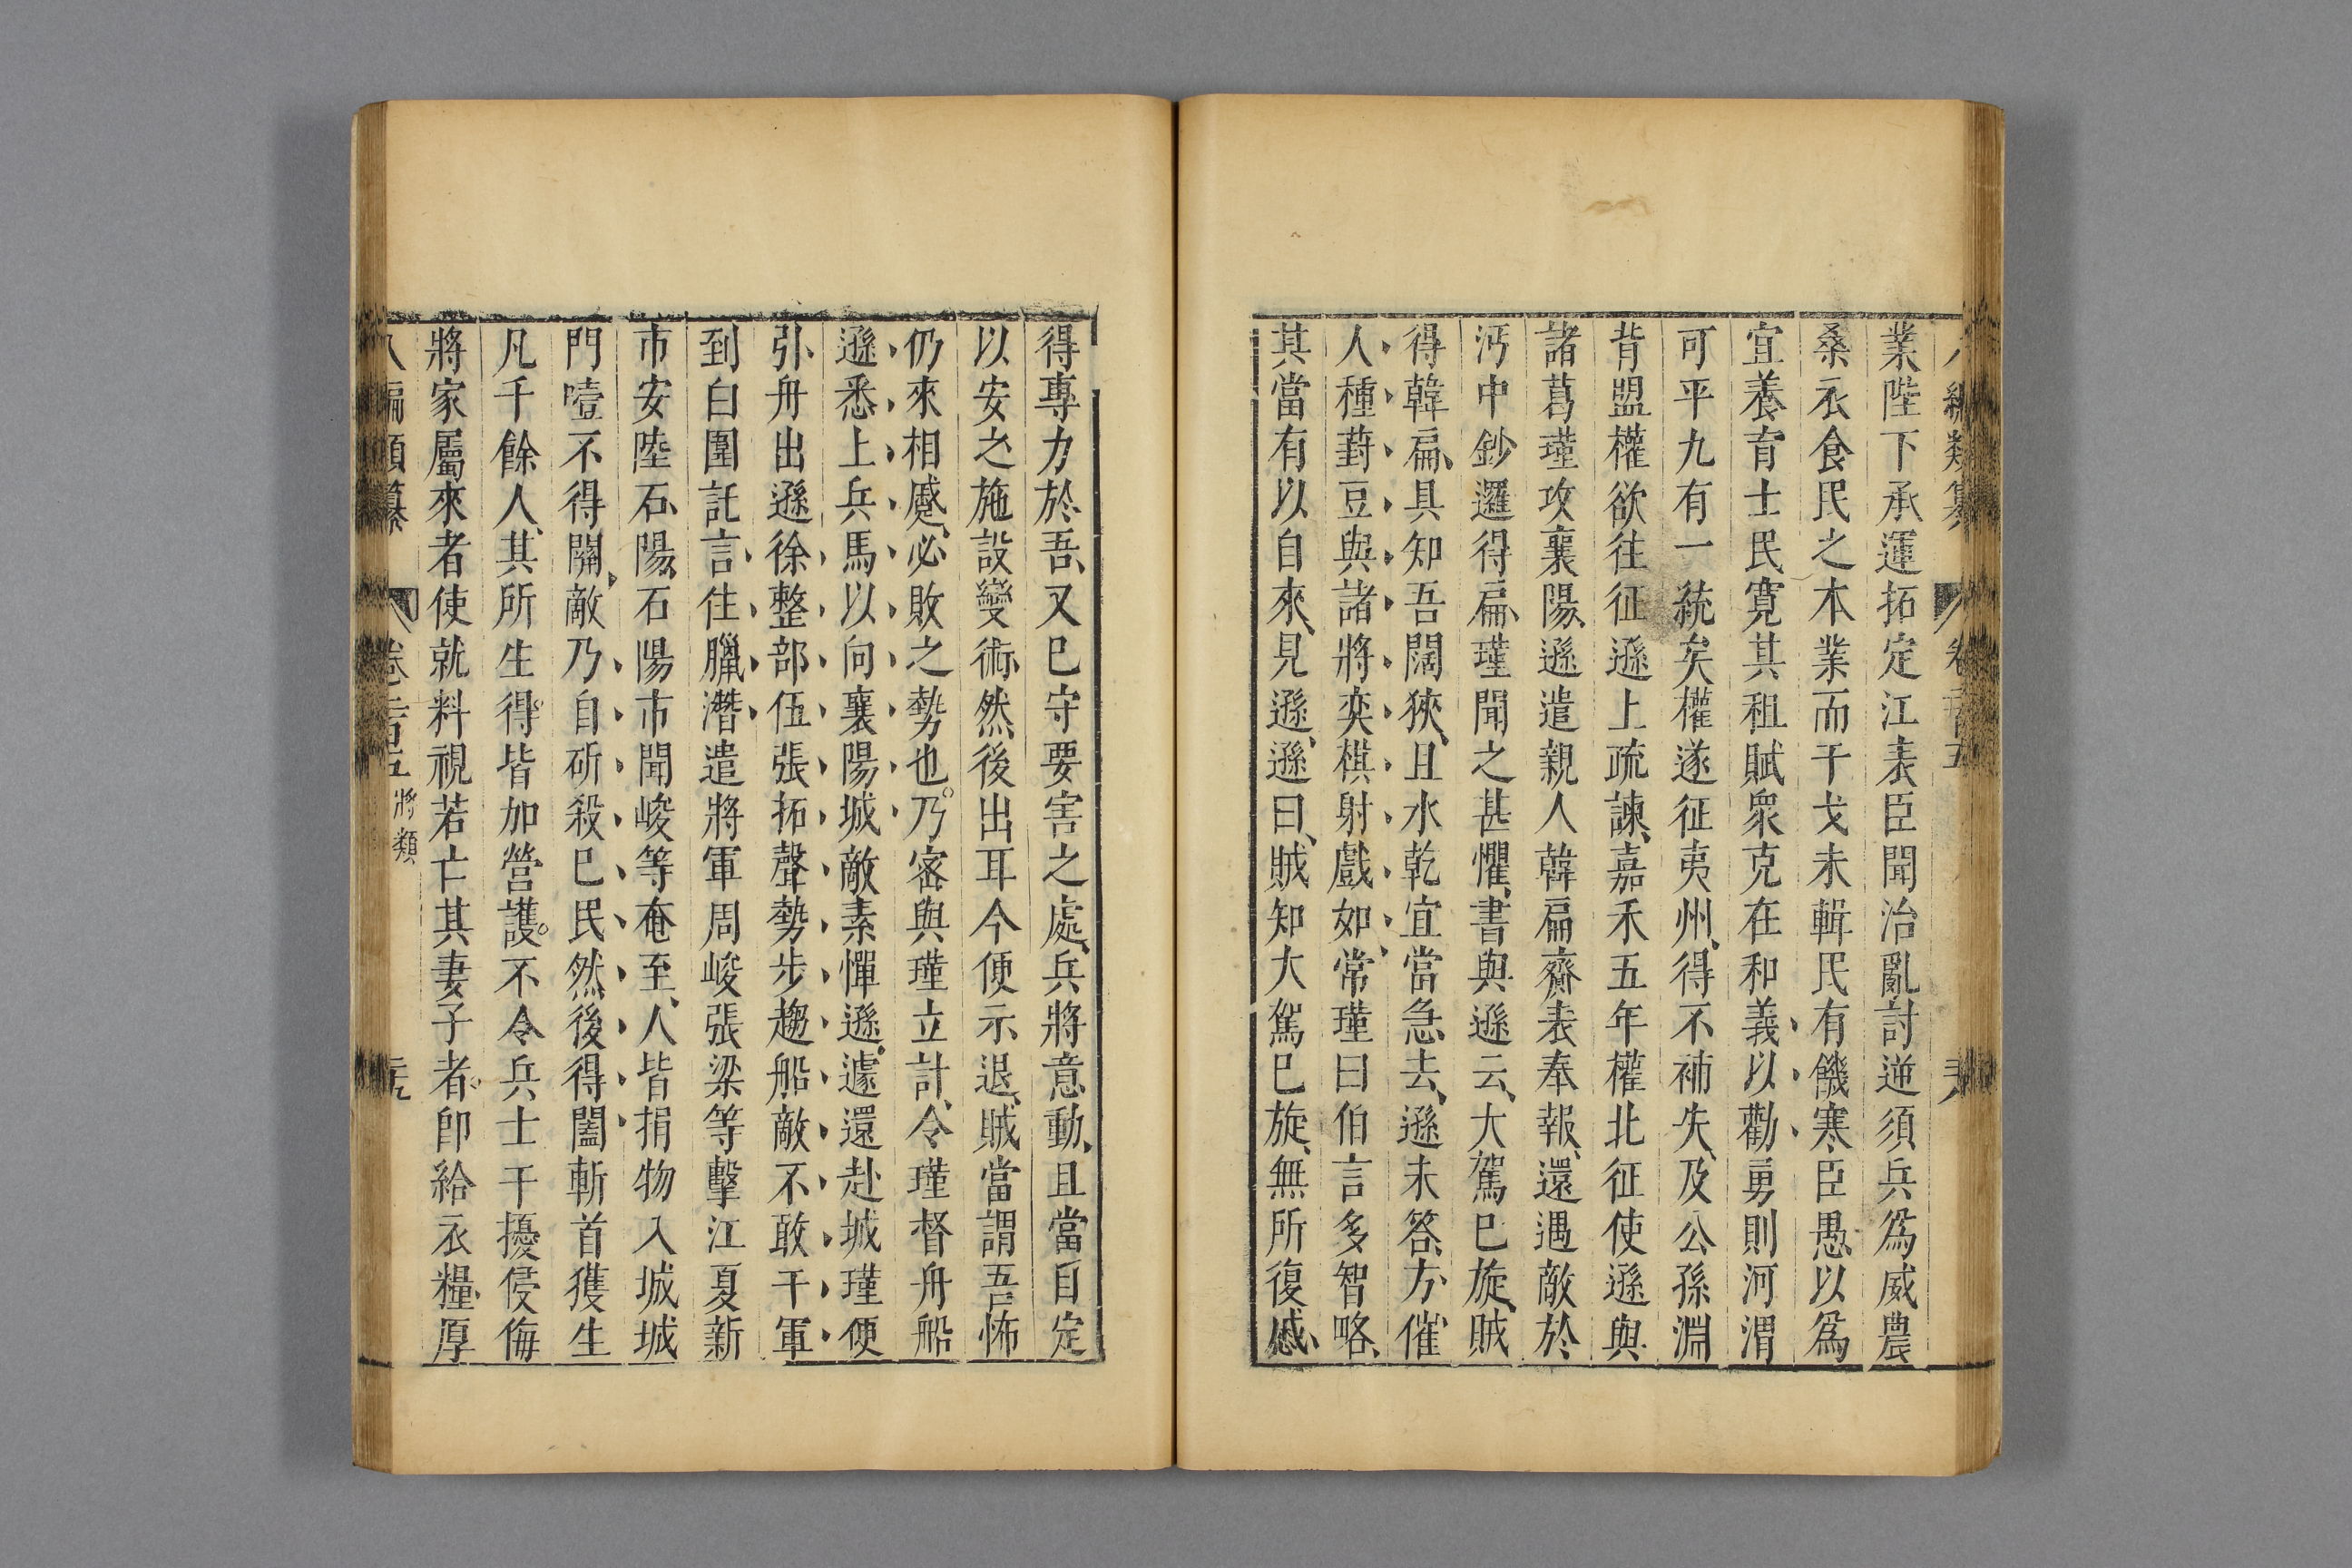 業陛下承運拓定江表臣聞治亂討逆須兵爲威農
桑衣食民之本業而干戈未輯民有饑寒臣愚以爲
宜養育士民寛其租賦衆克在和義以勸勇則河渭
可平九有一統矣權遂征夷州得不補失及公孫淵
背盟權欲往征遜上疏諫嘉禾五年權北征使遜與
諸葛瑾攻襄陽遜遣親人韓扁齎表奉報還遇敵於
沔中鈔邏得扁瑾聞之甚懼書與遜云大駕已旋賊
得韓扁具知吾闊狹且水乾宜當急去遜未答方催
人種葑豆與諸將奕棋射戲如常瑾曰伯言多智略
其當有以自來見遜遜曰賊知大駕已旋無所復慼
得專力於吾又已守要害之處兵將意動且當自定
以安之施設變術然後出耳今便示退賊當謂吾怖
仍來相蹙必敗之勢也乃密與瑾立計令瑾督舟船
遜悉上兵馬以向襄陽城敵素憚遜遽還赴城瑾便
引舟出遜徐整部伍張拓聲勢步趨船敵不敢干軍
到白圍託言往臘潛遣將軍周峻張梁等擊江夏新
市安陸石陽石陽市聞峻等奄至人皆捐物入城城
門噎不得關敵乃自斫殺已民然後得闔斬首獲生
凡千餘人其所生得皆加營護不令兵士干擾侵侮
將家屬來者使就料視若亡其妻子者卽給衣糧厚
編類纂 卷 將類